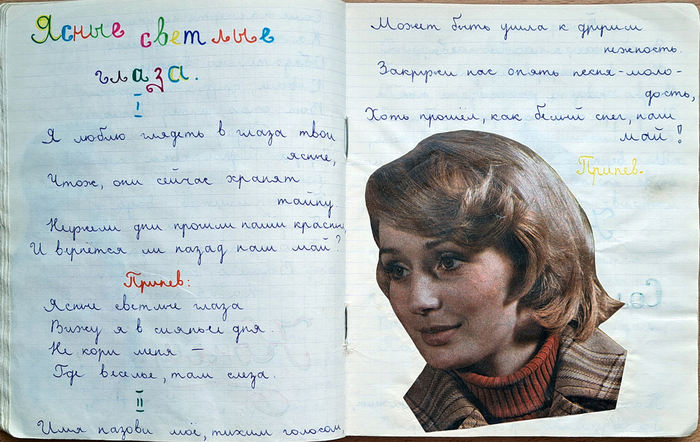 Ясные светлые
глаза.
I
Я люблю глядеть в глаза твои
ясные,
Чтож, они сейчас хранят
тайну
Неужели дни прошли наши красны,
И вернётся ли назад наш май?
Припев:
Ясные светлые глаза
Вижу я в сияньее дня.
Не кори меня –
Где веселье, там слеза.
II
Имя назови моё, тихим голосом,
Может быть ушла к другим
нежность.
Закружи нас опять песня-моло-
дость,
Хоть прошёл, как белый снег, наш
май!
Припев.